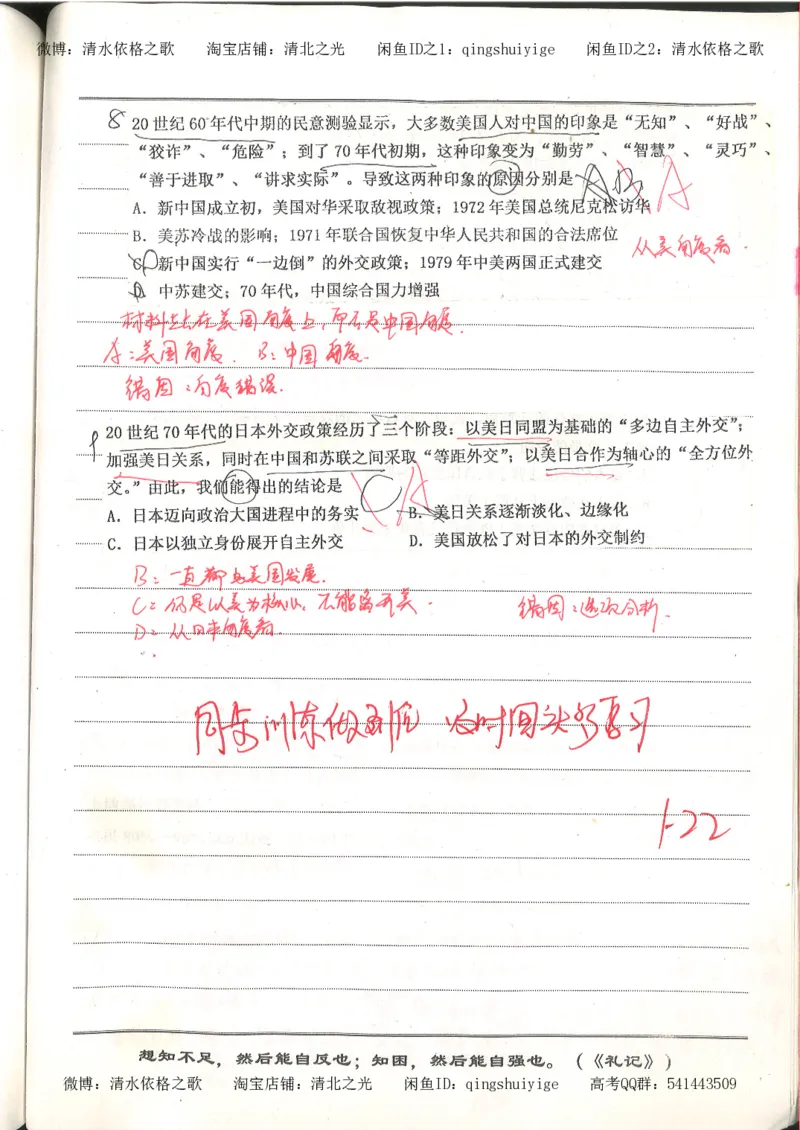 微博：清水依格之歌 淘宝店铺：清北之光 闲鱼ID之1：qingshuiyige 闲鱼ID之2：清水依格之歌
8 20世纪60年代中期的民意测验显示，大多数美国人对中国的印象是“无知”、“好战”、
“狡诈”、“危险”；到了70年代初期，这种印象变为“勤劳”、“智慧”、“灵巧”、
“善于进取”、“讲求实际”。导致这两种印象的原因分别是 A
A．新中国成立初，美国对华采取敌视政策；1972年美国总统尼克松访华
B．美苏冷战的影响；1971年联合国恢复中华人民共和国的合法席位
从美角度看．
C．新中国实行“一边倒”的外交政策；1979年中美两国正式建交
D．中苏建交；70年代，中国综合国力增强
材料站在美国角度上，而不是中国角度．
A：美国角度．B：中国角度．
错因：角度错误．
9 20世纪70年代的日本外交政策经历了三个阶段：以美日同盟为基础的“多边自主外交”；
加强美日关系，同时在中国和苏联之间采取“等距外交”；以美日合作为轴心的“全方位外
交。”由此，我们能得出的结论是 C A
A．日本迈向政治大国进程中的务实 B．美日关系逐渐淡化、边缘化
C．日本以独立身份展开自主外交 D．美国放松了对日本的外交制约
B：一直都与美国发展．
C：仍是以美为核心，不能离开美．
错因：选项分析．
D：从日本角度看．
同步训练做到后 及时回头多复习
1-22
想知不足，然后能自反也；知困，然后能自强也。（《礼记》）
微博：清水依格之歌 淘宝店铺：清北之光 闲鱼ID：qingshuiyige 高考QQ群：541443509